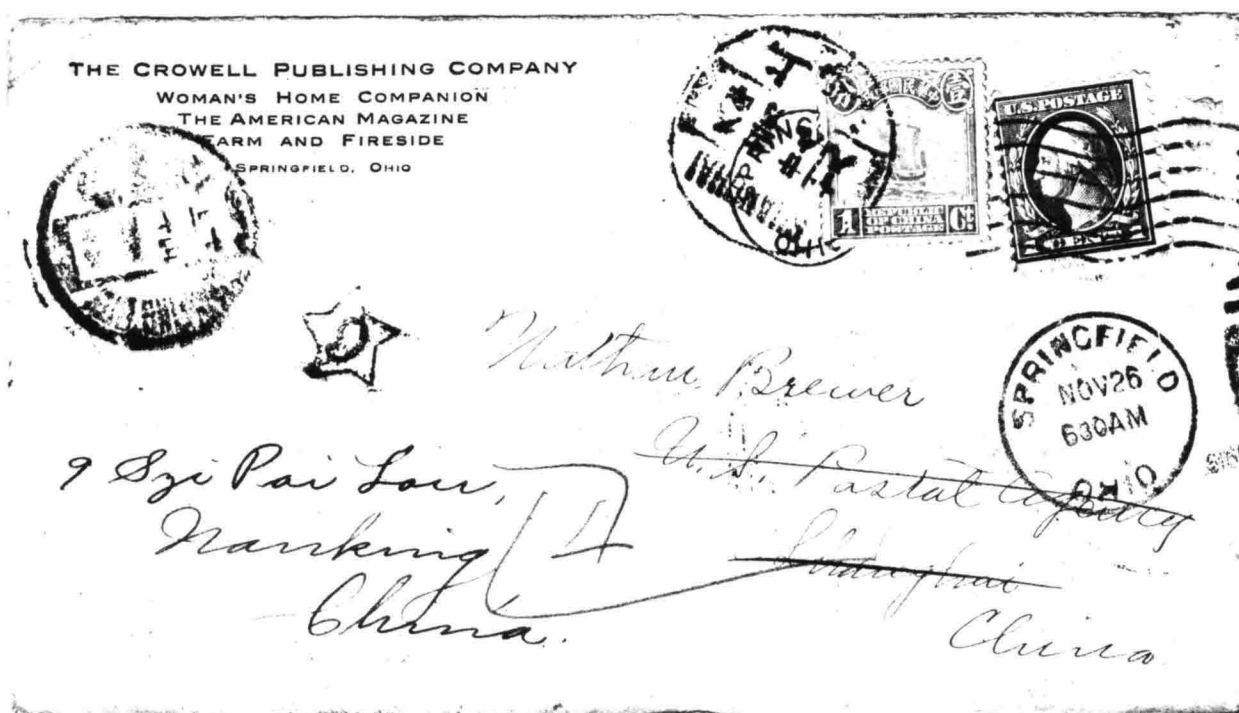 THE CROWELL PUBLISHING COMPANY
WOMAN'S HOME COMPANION
THE AMERICAN MAGAZINE
FARM AND FIRESIDE
SPRINGFIELD, OHIO
SHANGHAI
SPRING
OHIO
壹
1 REPUBLIC OF CHINA POSTAGE Ct
U.S. POSTAGE
CENTS
SPRINGFIELD
NOV 26
630AM
OHIO
Nathan Brewer
U.S. Postal Agency
Shanghai
China
9 Szi Pai Lou,
Nanking
China.